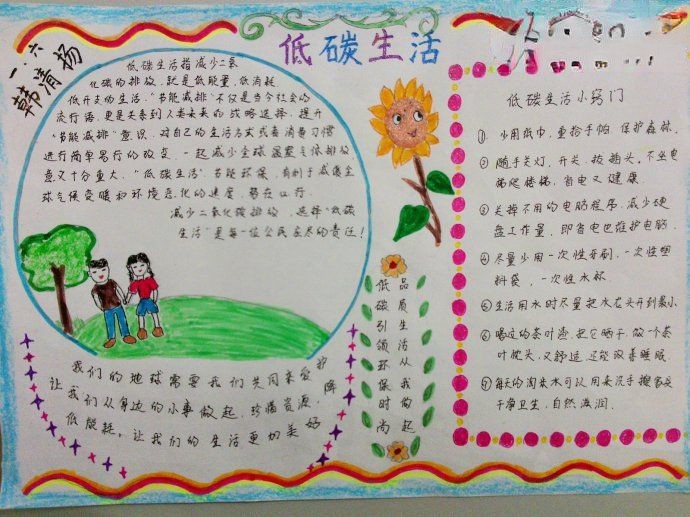 低碳生活
一.六
韩清杨
低碳生活指减少二氧
化碳的排放,就是低能量,低消耗
低开支的生活,“节能减排”不仅是当今社会的
流行语,更是关系到人类未来的战略选择,提升
“节能减排”意识,对自己的生活方式或者消费习惯
进行简单易行的改变,一起减少全球温室气体排放
意义十分重大,“低碳生活”节能环保,有利于减缓全
球气候变暖和环境恶化的速度,势在必行.
减少二氧化碳排放,选择“低碳
生活”是每一位公民应尽的责任!
我们的地球需要我们共同来爱护
让我们从身边的小事做起,珍惜资源,降
低能耗,让我们的生活更加美好
低碳引领环保时尚
品质生活从我们起
低碳生活小窍门
① 少用纸巾,重拾手帕,保护森林.
② 随手关灯,开关,拔插头,不坐电
梯爬楼梯,省电又健康.
③ 关掉不用的电脑程序,减少硬
盘工作量,即省电也维护电脑.
④ 尽量少用一次性牙刷,一次性塑
料袋,一次性水杯
⑤ 生活用水时尽量把水龙头开到最小
⑥ 喝过的茶叶渣,把它晒干,做一个茶
叶枕头,又舒适,还能改善睡眠
⑦ 每天的淘米水可以用来洗手擦家具
干净卫生,自然滋润.